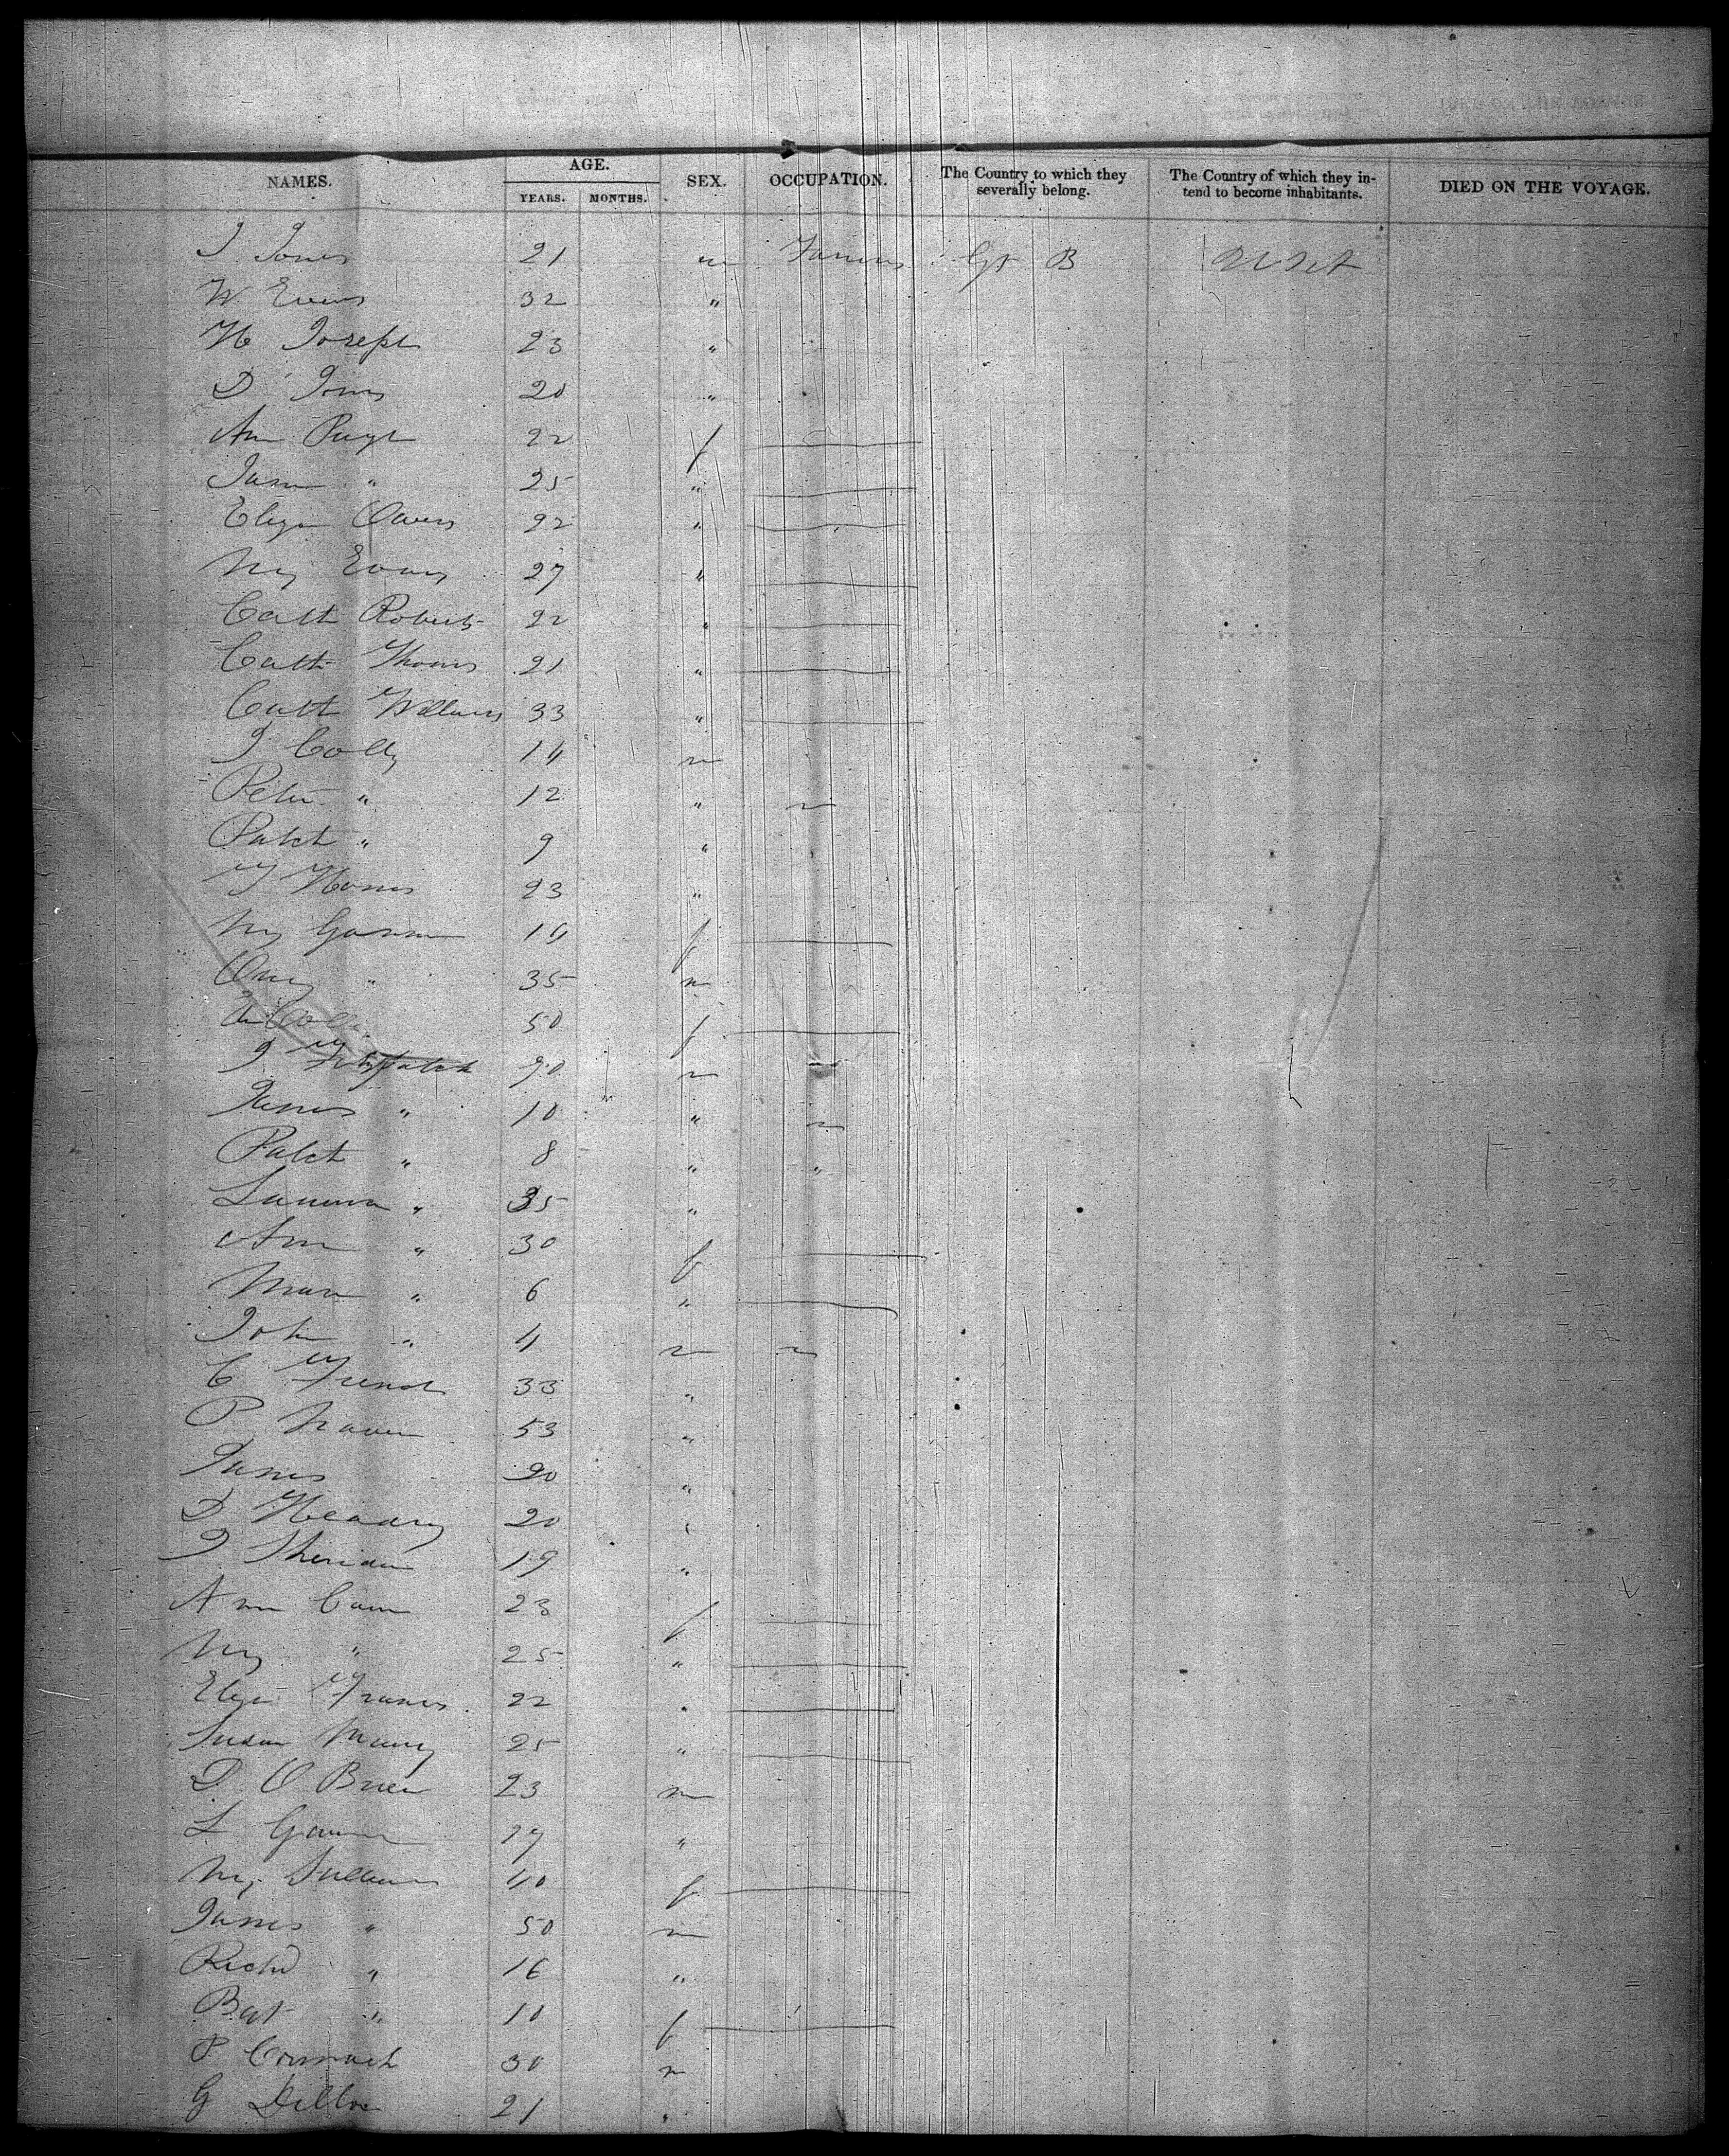 NAMES. AGE. YEARS. MONTHS. SEX. OCCUPATION. The Country to which they severally belong. The Country of which they intend to become inhabitants. DIED ON THE VOYAGE.
J Jones 21 m Farmers Gt B
W Evans 32 "
H Joseph 23 "
D Jones 20 "
Ann Pugh 22 f
Jane " 25 "
Eliza Owens 22 "
My Evans 27 "
Cath Roberts 22 "
Cath Thomas 21 "
Cath Williams 33 "
J Colly 14 m
Peter " 12 "
Patck " 9 "
23 "
My Gannon 14 f
" 35 m
50 f
J Fitzpatrick m
James " 10 "
Patck " 8 "
" 35 "
Ann " 30 f
" 6 "
John " 4 m
C French 33 "
P 53 "
James 20 "
D 20
J Sheridan 19 "
Ann 23 f
My " 25 "
Eliza Francis 22 "
Susan 25 "
D O Brien 23 m
L "
My Sullivan 40 f
James " 50 m
Richd " 16 "
" 10 f
P Cormack 30 m
G Dillon 21 "